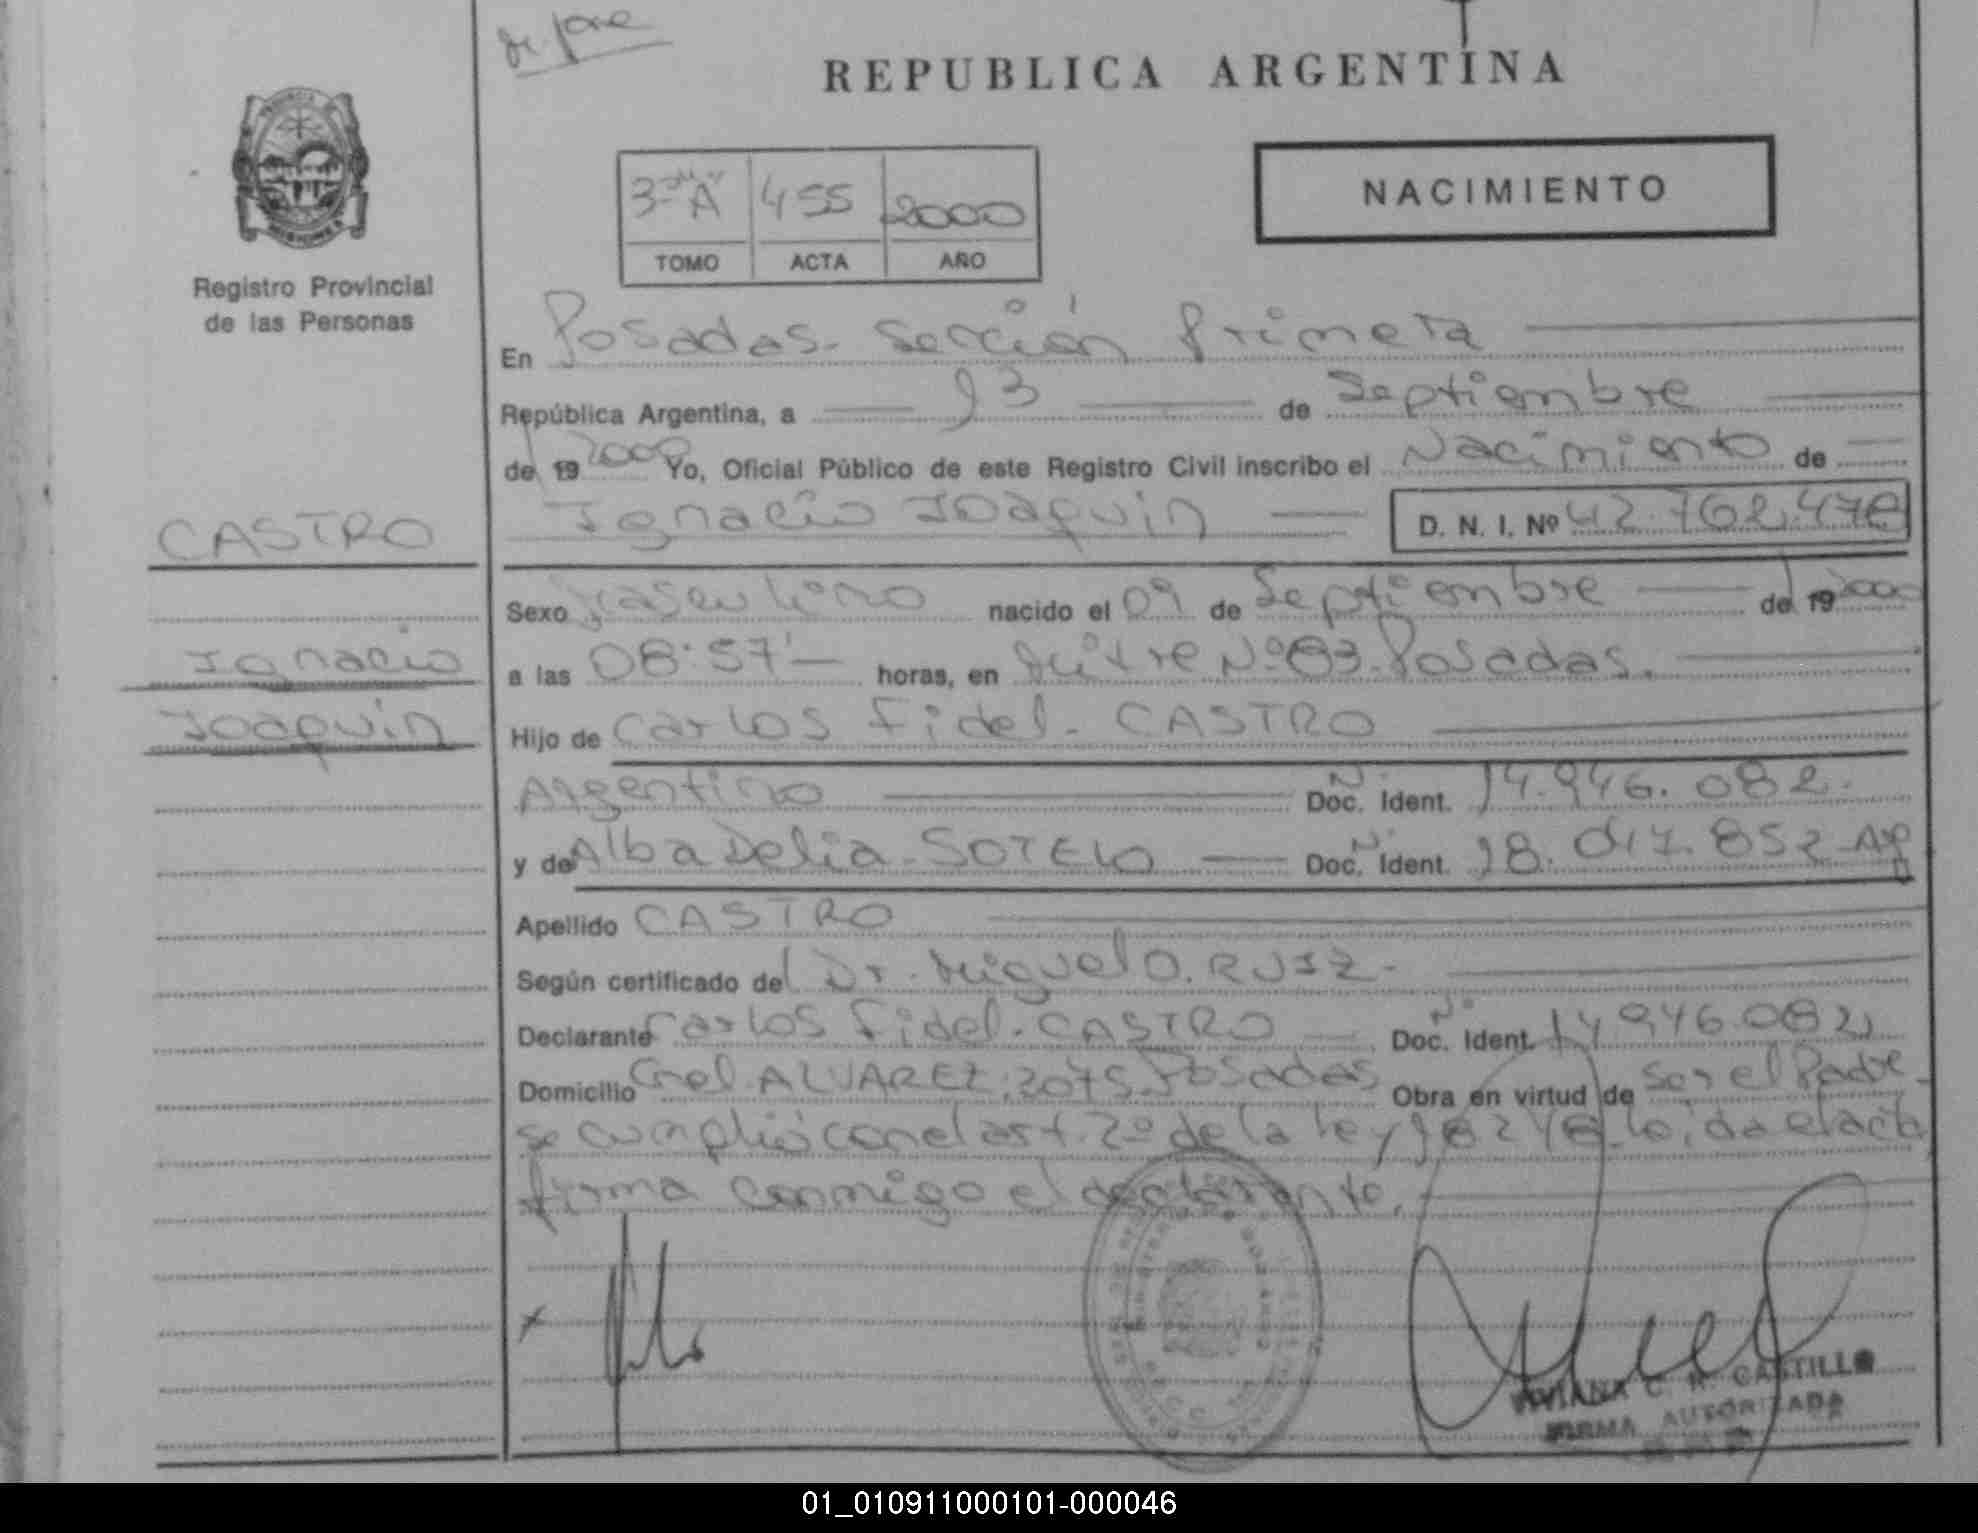 REPUBLICA ARGENTINA
3º "A" 455 2000
TOMO ACTA AÑO
NACIMIENTO
PROVINCIA DE
MISIONES
Registro Provincial
de las Personas
En Posadas. Sección Primera
República Argentina, a 13 de Septiembre
de 19 2000 Yo, Oficial Público de este Registro Civil inscribo el Nacimiento de
Ignacio Joaquin D. N. I. Nº 42.762.478
CASTRO
Ignacio
Joaquin
Sexo Masculino nacido el 09 de Septiembre de 19 2000
a las 08:57' horas, en Mitre Nº 83. Posadas.
Hijo de Carlos Fidel. CASTRO
Argentino Doc. Ident. Nº 14.946.082.
y de Alba Delia. SOTELO Doc. Ident. Nº 18. 017. 852
Apellido CASTRO
Según certificado del Dr. Miguel O. RUIZ.
Declarante Carlos Fidel. CASTRO Doc. Ident. Nº 14.946.082
Domicilio Cnel. ALVAREZ. 2075. Posadas Obra en virtud de ser el Padre.
se cumplió con el art. 2º de la ley 18248. leida el acta
firma conmigo el declarante.
VIVIANA C. R. CASTILLO
FIRMA AUTORIZADA
01_010911000101-000046